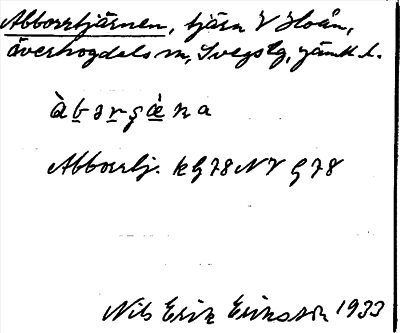 Abborrtjärnen, tjärn V Hoån,
Överhogdals sn, Svegs tg, Jämtl. l.
àbərʂæ̀na
Abborrtj. kG78NV G78
Nils Erik Eriksson 1933